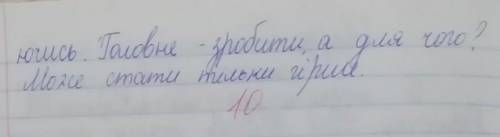 ючись. Головне - зробити, а для чого?
Може стати тільки гірше.
10